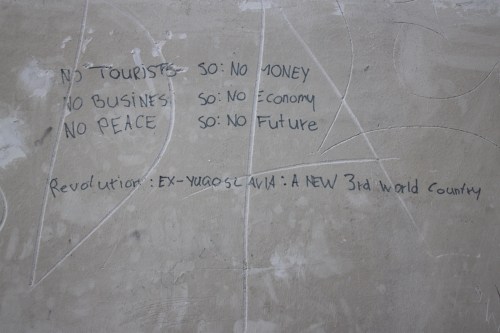 NO TOURISTS SO: NO MONEY
NO BUSINES SO: NO Economy
NO PEACE SO: NO Future
Revolution: EX-YUGOSLAVIA: A NEW 3rd World Country